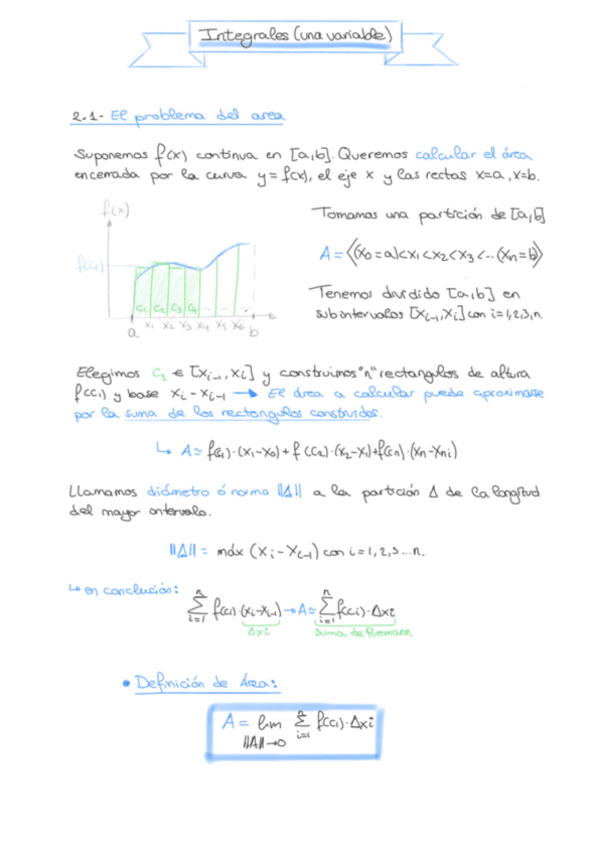 Integrales (una variable)
2.1- El problema del area
Suponemos f(x) continua en [a,b]. Queremos calcular el área
encerrada por la curva y = f(x), el eje x y las rectas x=a, x=b.
f(x)
Tomamos una partición de [a,b]
A = {(x₀ = a)<x₁<x₂<x₃<...(xₙ=b)}
f(c₁)
Tenemos dividido [a,b] en
subintervalos [xᵢ₋₁,xᵢ] con i=1,2,3,n.
c₁ c₂ c₃ c₄ ...
a x₁ x₂ x₃ x₄ x₅ x₆ b
Elegimos c₁ ∈ [xᵢ₋₁, xᵢ] y construimos "n" rectangulos de altura
f(c₁) y base xᵢ - xᵢ₋₁ → El área a calcular puede aproximarse
por la suma de los rectangulos construidos.
↳ A ≃ f(c₁)·(x₁-x₀) + f(c₂)·(x₂-x₁)+f(cₙ)·(xₙ-xₙᵢ)
Llamamos diámetro ó norma ||Δ|| a la partición Δ de la longitud
del mayor intervalo.
||Δ|| = máx (xᵢ - xᵢ₋₁) con i=1,2,3...n.
↳ en conclusión:
n Σ i=1 f(cᵢ)·(xᵢ-xᵢ₋₁) → A ≃ n Σ i=1 f(cᵢ)·Δxᵢ
Δxᵢ Suma de Riemann
• Definición de Área:
A = lim n Σ i=1 f(cᵢ)·Δxᵢ
||Δ||→0